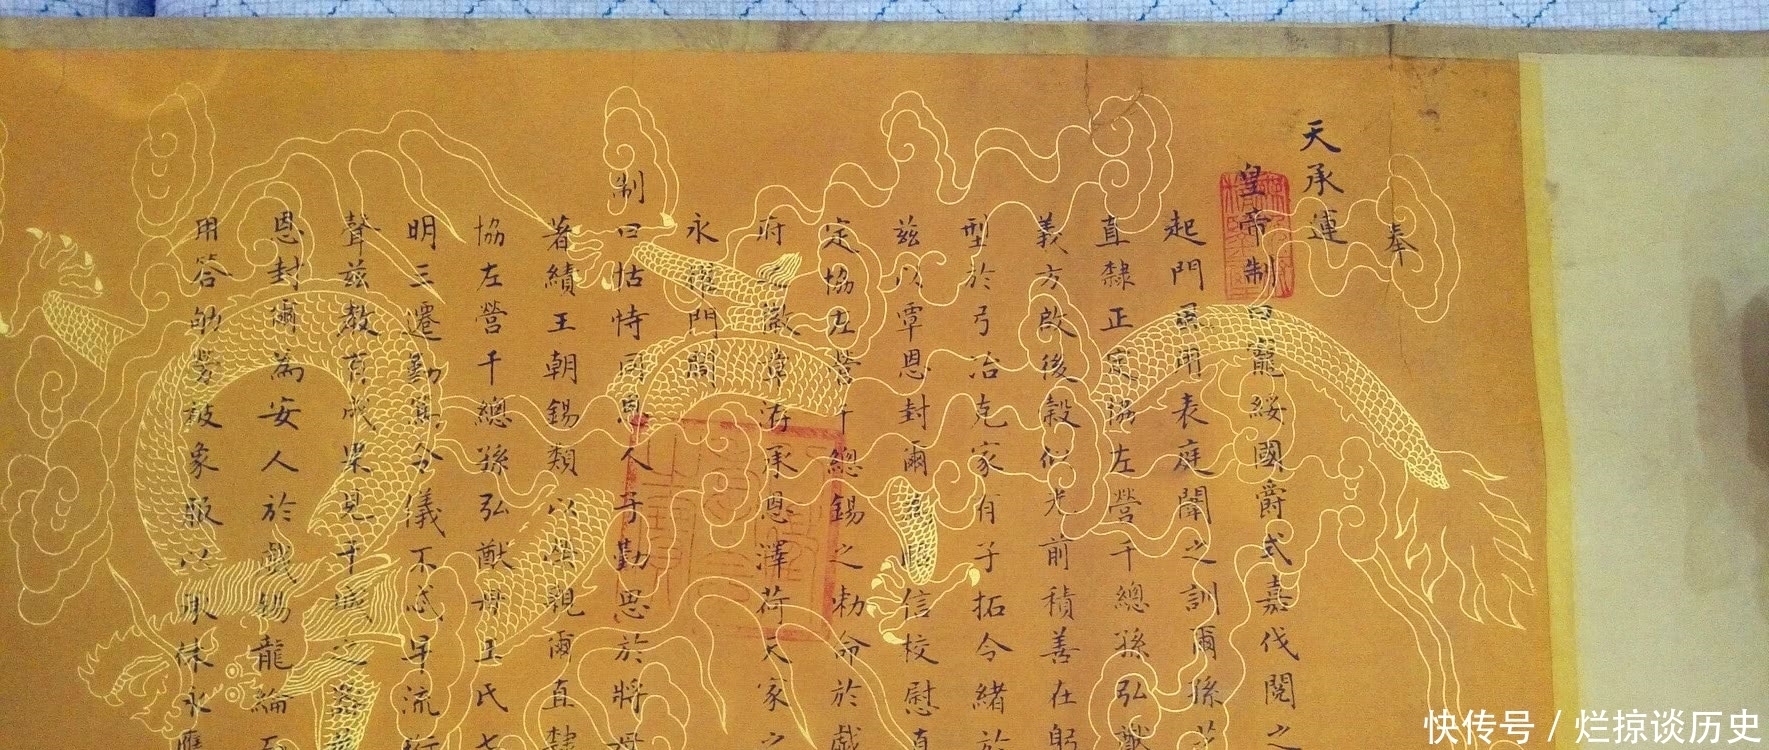 奉
天承運
皇帝制曰寵綏國爵式嘉伐閱之
起門 明表庭闈之訓爾孫
直隸正定協左營千總孫弘猷
義方啟後穀似光前積善在躬
型於弓冶克家有子拓令緒於
茲以覃恩封爾為 信校慰
定協左營千總錫之勅命於戲
府 徽章洊承恩澤荷天家之
永 門閭
制曰怙恃同恩人子勤思於將母
著績王朝錫類以 親爾直隸
協左營千總孫弘猷母王氏七
明三遷勤篤令儀不忒早流
聲茲教育成果見干城之
恩封爾為安人於戲錫龍綸
用答劬勞被象服以承休永膺
快传号 / 烂掠谈历史